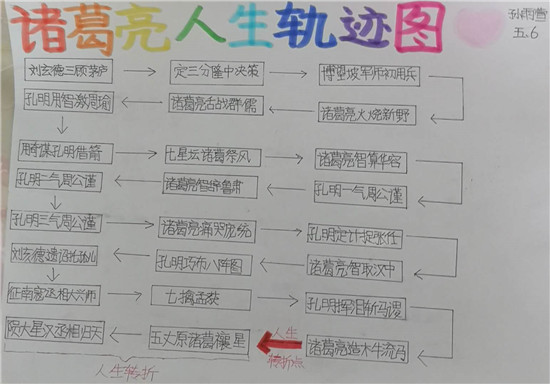 诸葛亮人生轨迹图
孙雨雪
五.6
刘玄德三顾茅庐
定三分隆中决策
博望坡军师初用兵
孔明用智激周瑜
诸葛亮舌战群儒
诸葛亮火烧新野
用奇谋孔明借箭
七星坛诸葛祭风
诸葛亮智算华容
孔明二气周公瑾
诸葛亮智辞鲁肃
孔明一气周公瑾
孔明三气周公瑾
诸葛亮痛哭庞统
孔明定计捉张任
刘玄德遗诏托孤儿
孔明巧布八阵图
诸葛亮智取汉中
征南寇丞相大兴师
七擒孟获
孔明挥泪斩马谡
陨大星汉丞相归天
五丈原诸葛禳星
人生
转折点
诸葛亮造木牛流马
人生转折